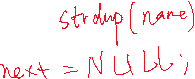 strdup(name)
next = NULL;